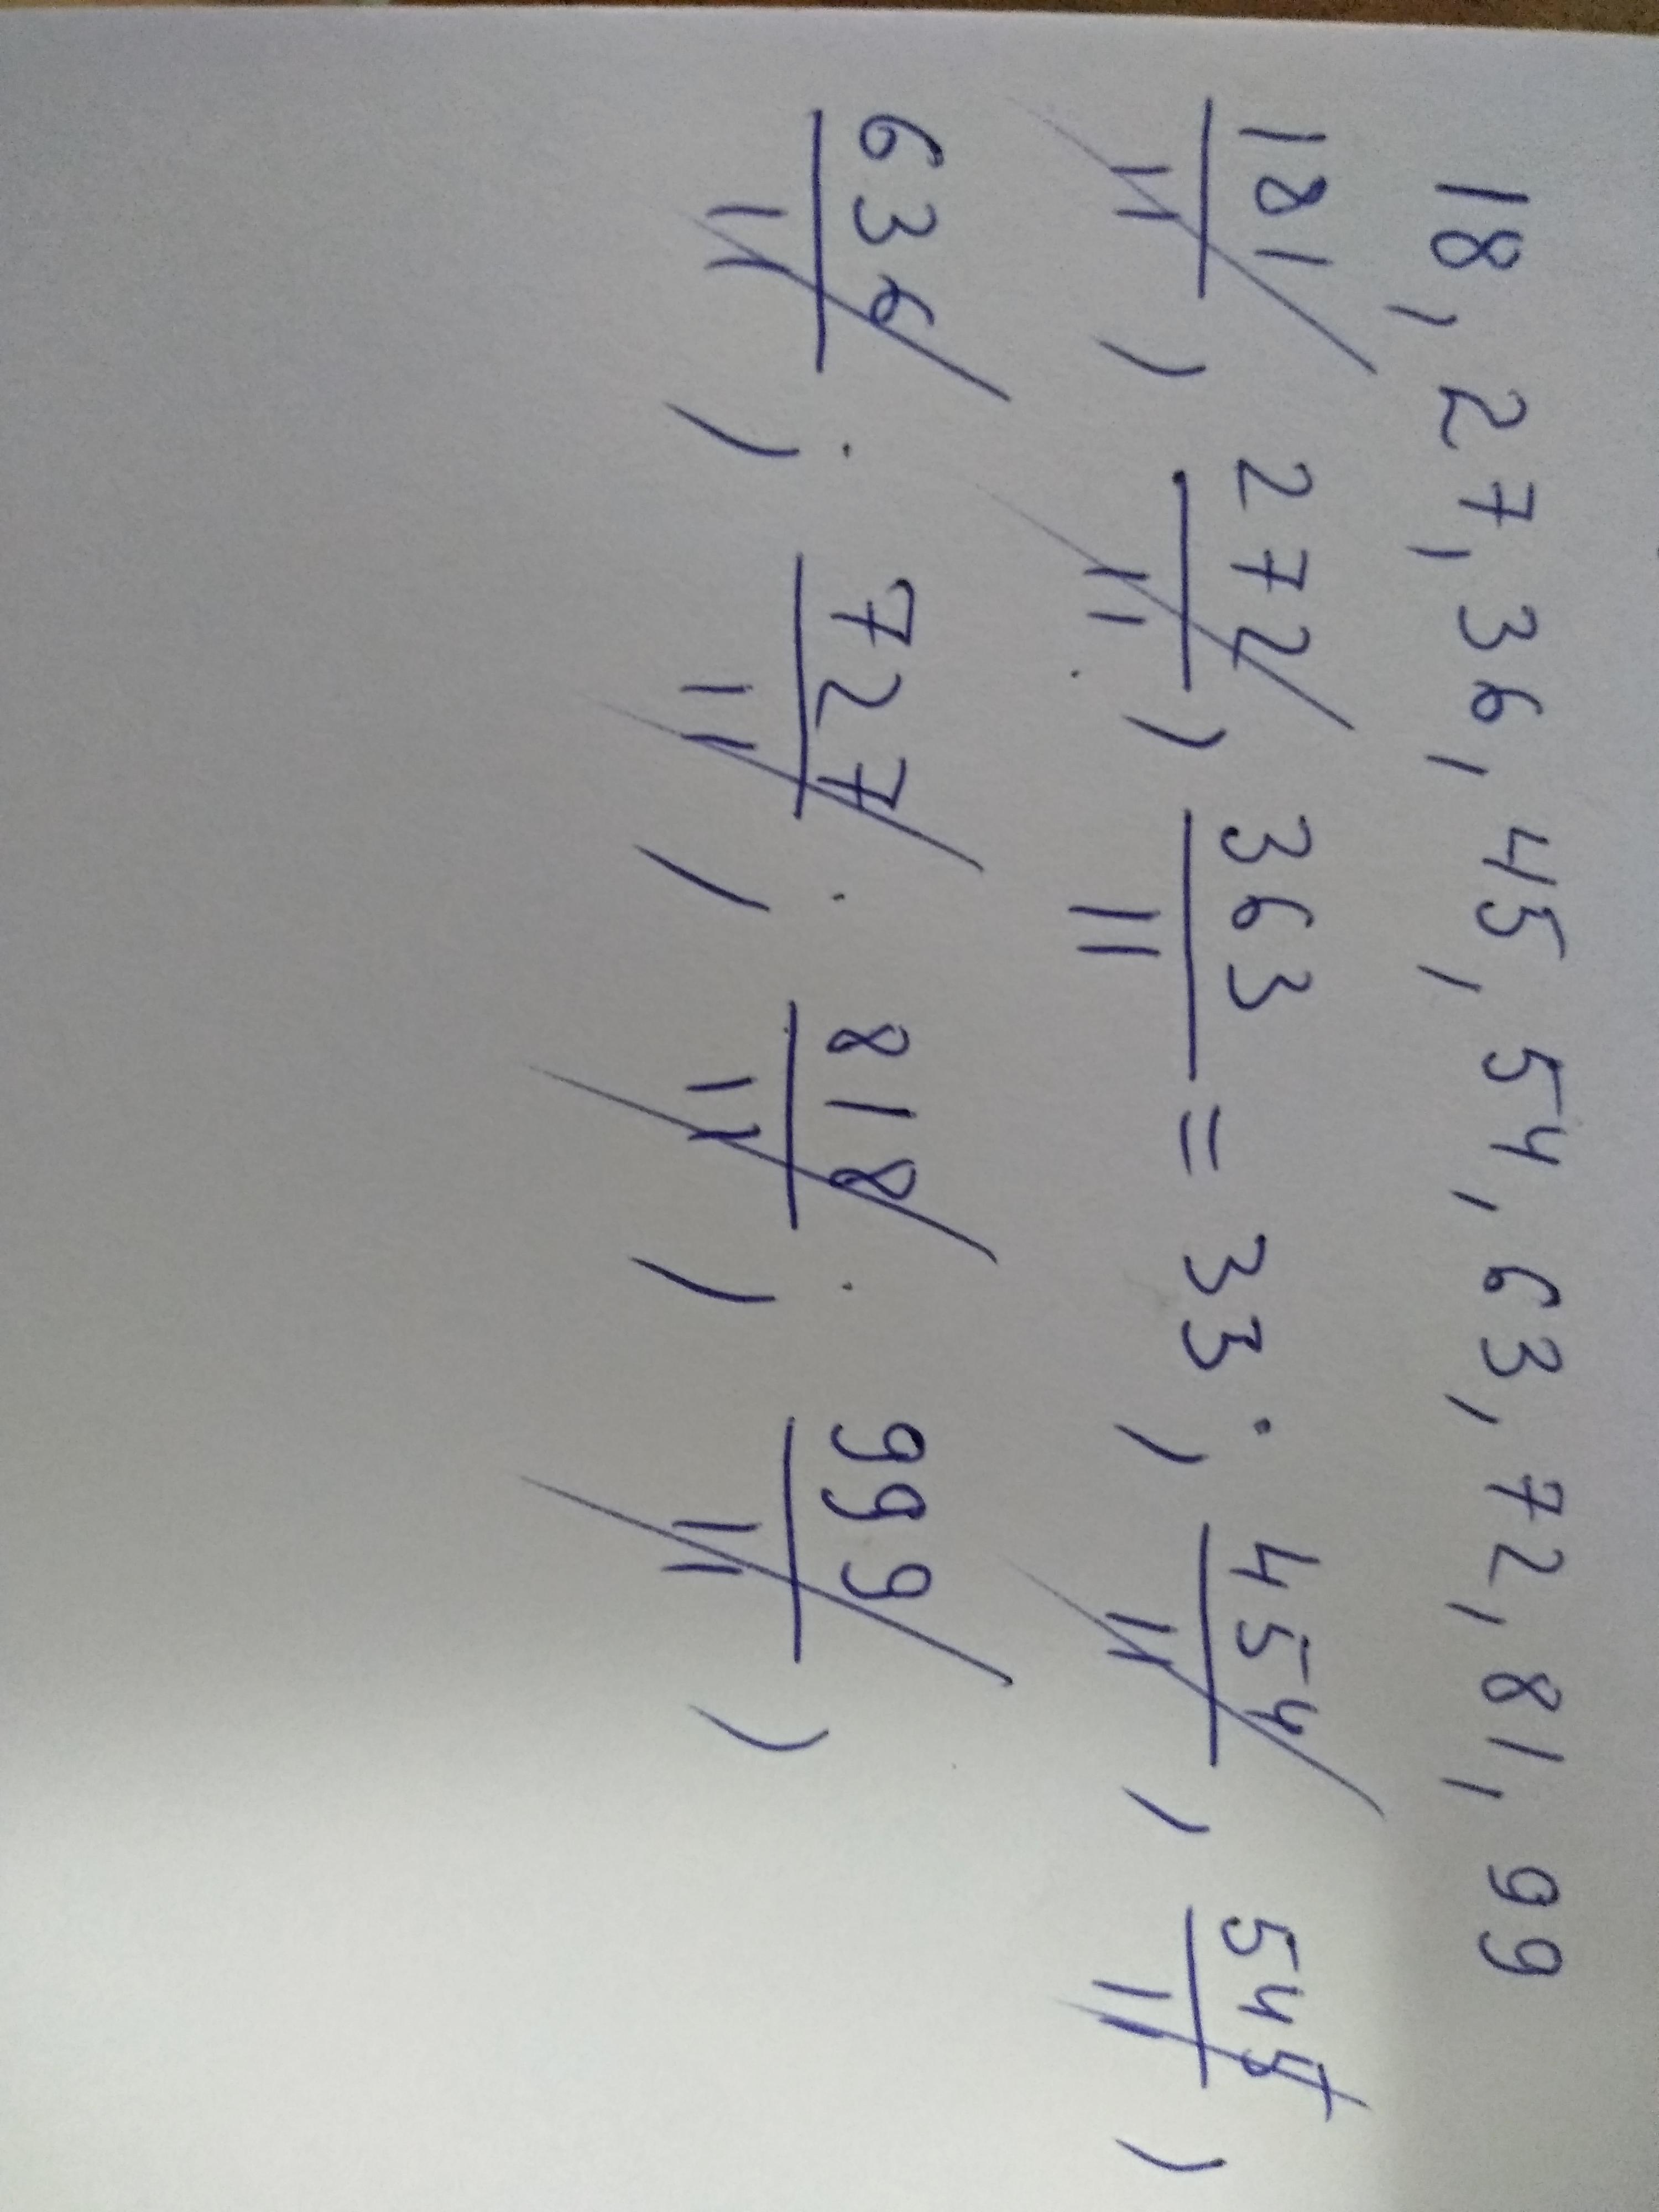 18, 27, 36, 45, 54, 63, 72, 81, 99
181/11, 272/11, 363/11 = 33; 454/11, 545/11,
636/11; 727/11; 818/11; 999/11,